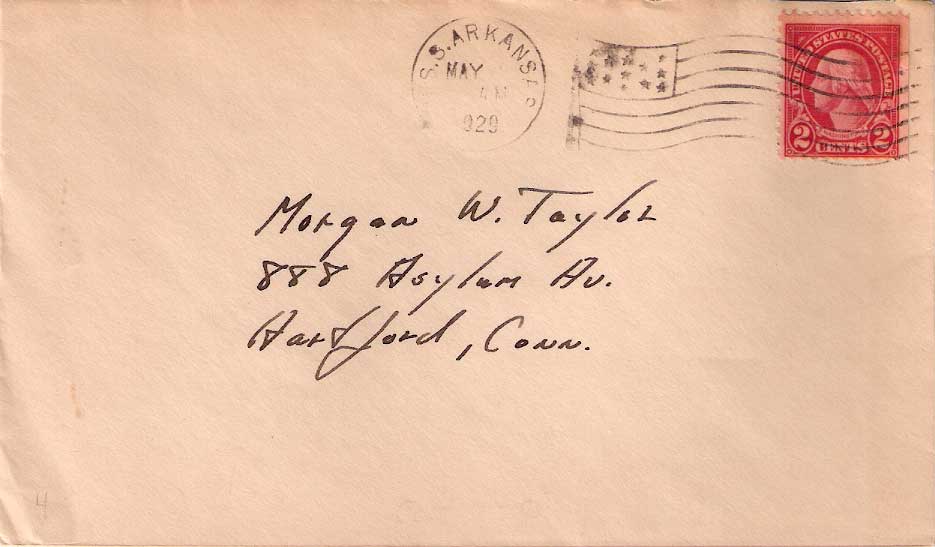 S.S. ARKANSAS
MAY
AM
1929
UNITED STATES POSTAGE
WASHINGTON
2 CENTS 2
Morgan W. Taylor
888 Asylum Av.
Hartford, Conn.
4